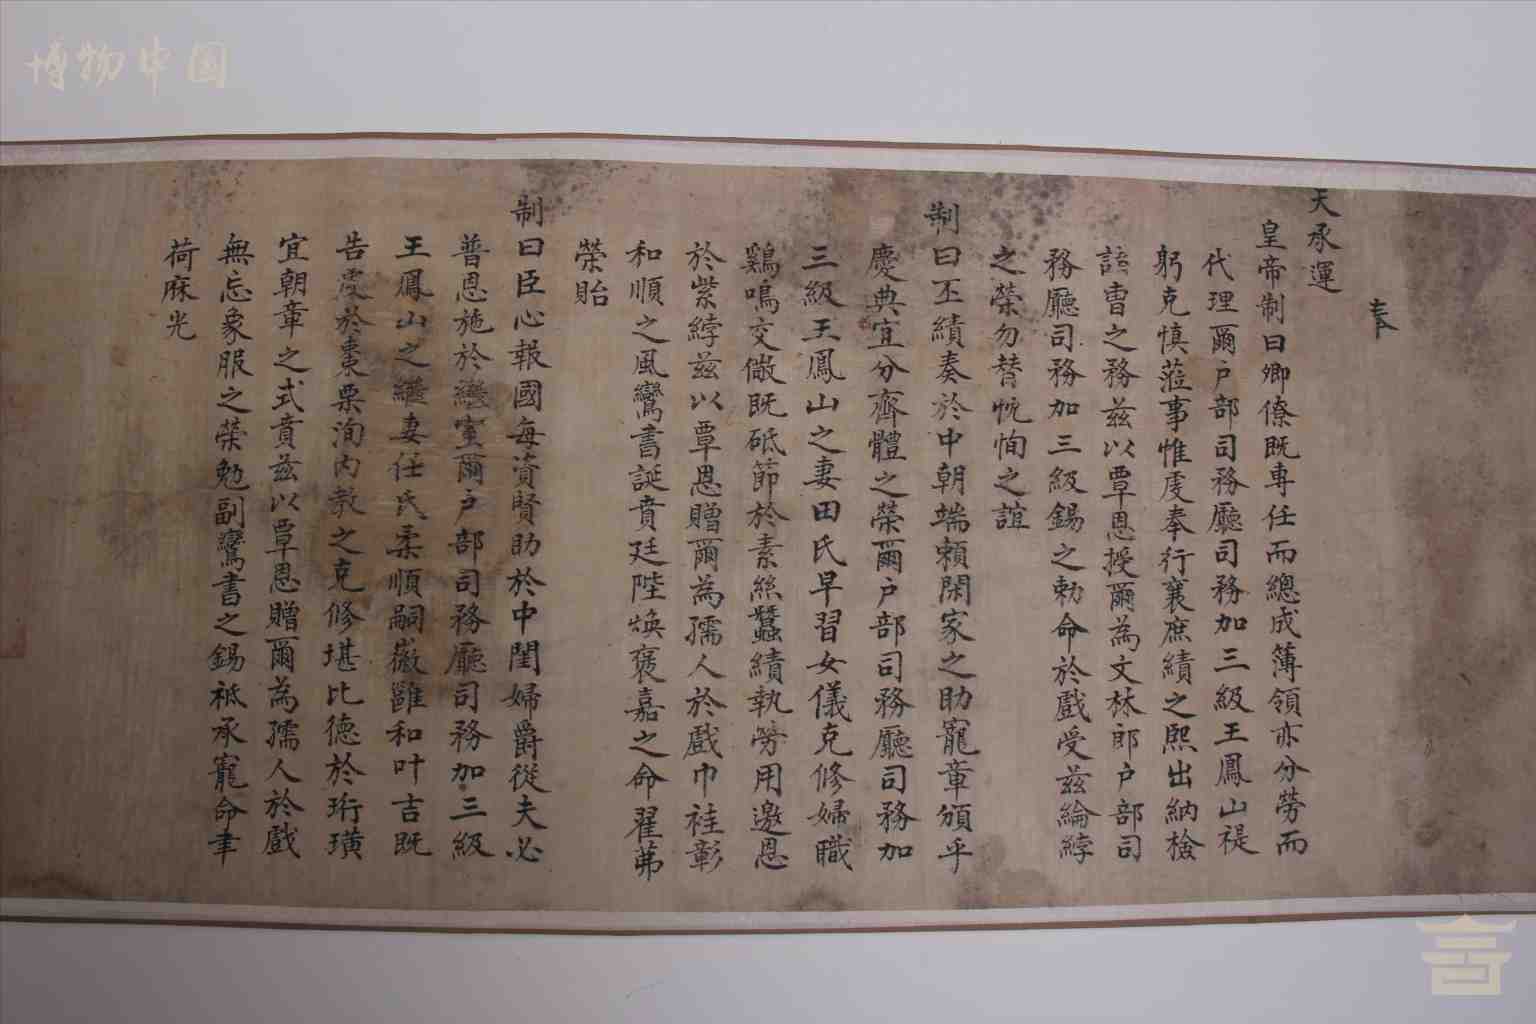 博物中国
奉
天承運
皇帝制曰卿僚既専任而總成簿領亦分勞而
代理爾户部司務廳司務加三級王鳳山禔
躬克慎蒞事惟虔奉行襄庶績之熙出納檢
諸曹之務兹以覃恩授爾為文林郎户部司
務廳司務加三級錫之勅命於戲受兹綸綍
之榮勿替忱恂之誼
制曰丕績奏於中朝端頼閑家之助寵章頒乎
慶典宜分齊體之榮爾户部司務廳司務加
三級王鳳山之妻田氏早習女儀克修婦職
鷄鳴交儆既砥節於素絲蠶績執勞用邀恩
於紫綍兹以覃恩贈爾為孺人於戲巾袿彰
和順之風鸞書誕賁廷陛煥褒嘉之命翟茀
榮貽
制曰臣心報國每資賢助於中閨婦爵從夫必
普恩施於繼室爾户部司務廳司務加三級
王鳳山之繼妻任氏柔順嗣徽雝和叶吉既
告虔於棗栗洵内教之克修堪比德於珩璜
宜朝章之式賁兹以覃恩贈爾為孺人於戲
無忘象服之榮勉副鸞書之錫祗承寵命聿
荷庥光